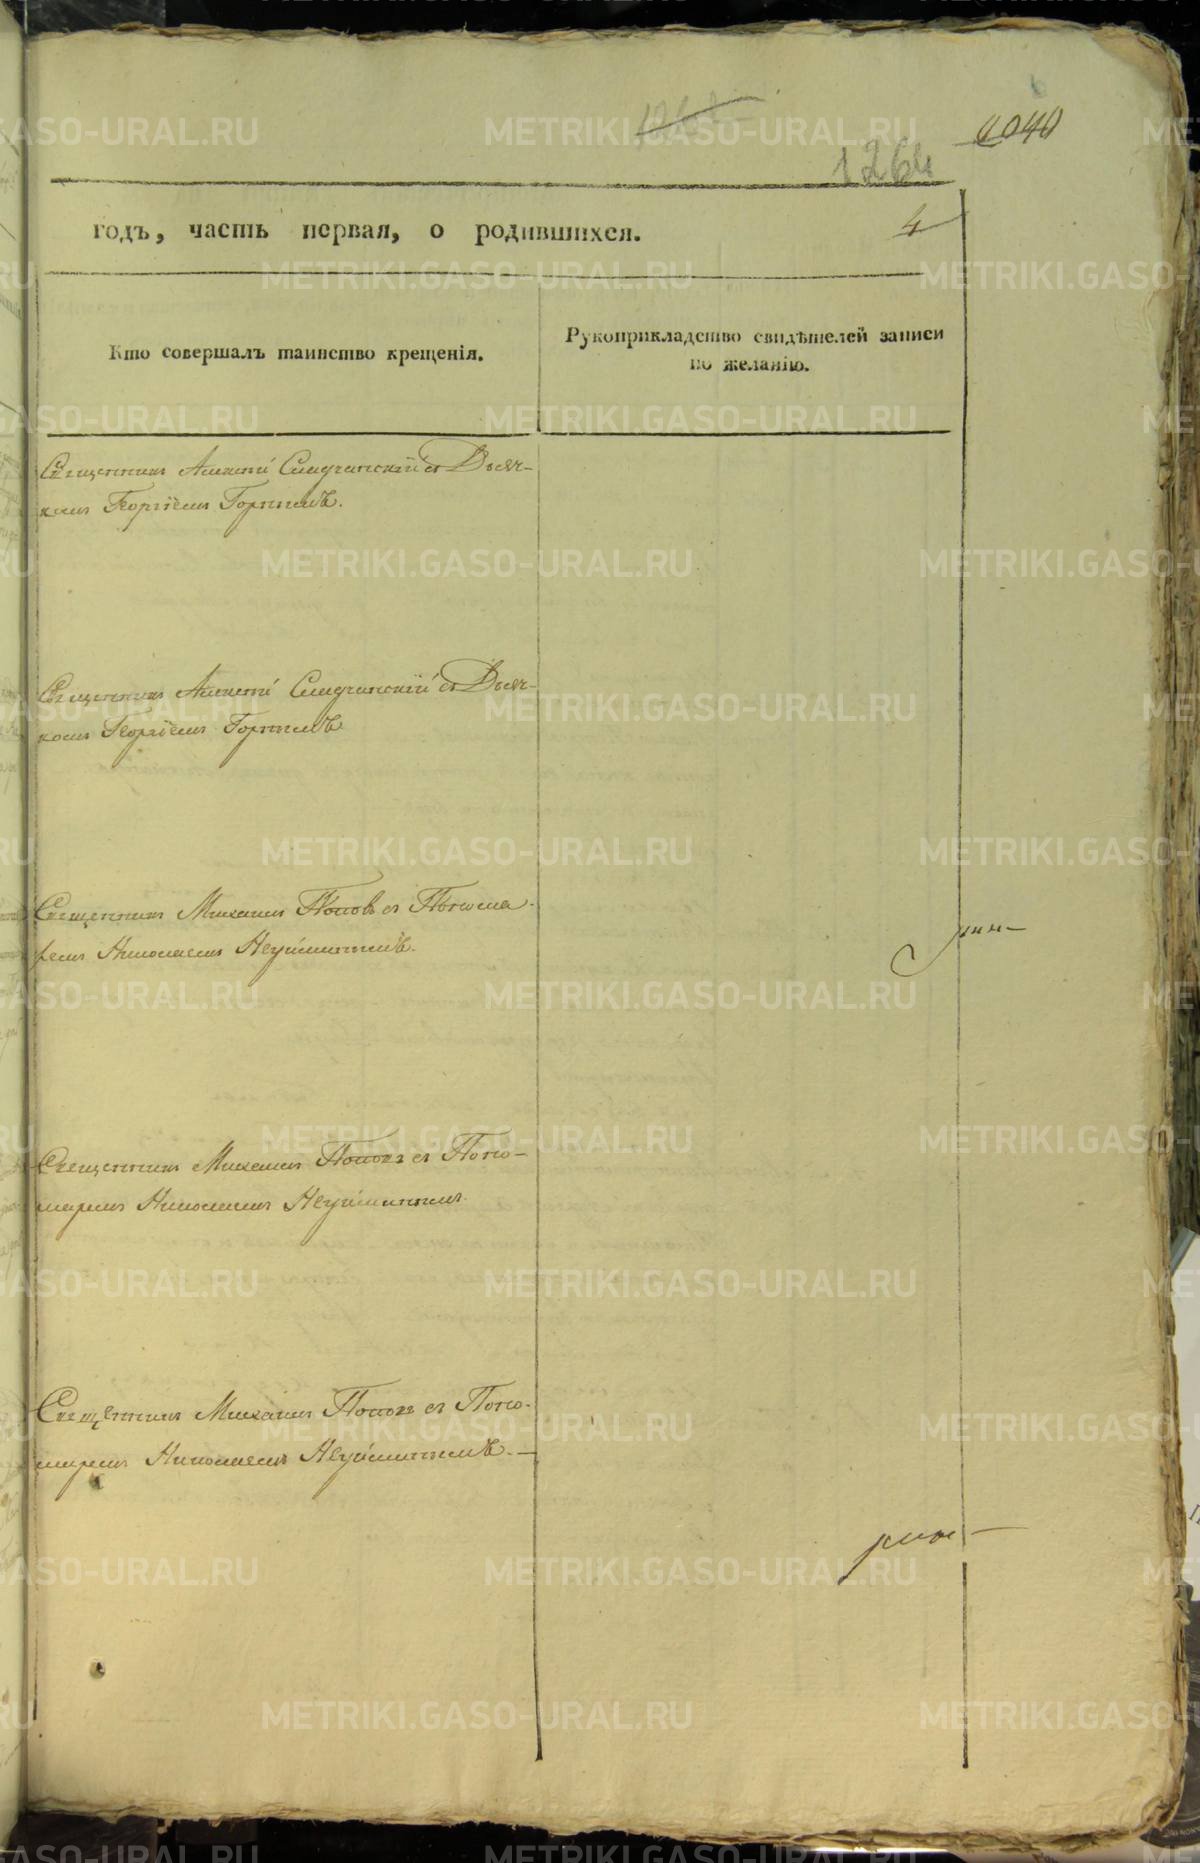 1264
1040
годъ, часть первая, о родившихся.
4
Кто совершалъ таинство крещенія.
Рукоприкладство свидѣтелей записи
по желанію.
Священникъ Алексѣй
Георгіемъ
Священникъ Алексѣй
комъ Георгіемъ
Священникъ Михаилъ Поповъ съ Понома-
ремъ Николаемъ Неуйминымъ.
Священникъ Михаилъ Поповъ съ Поно-
маремъ Николаемъ Неуйминымъ.
Священникъ Михаилъ Поповъ съ Поно-
маремъ Николаемъ Неуйминымъ.
METRIKI.GASO-URAL.RU